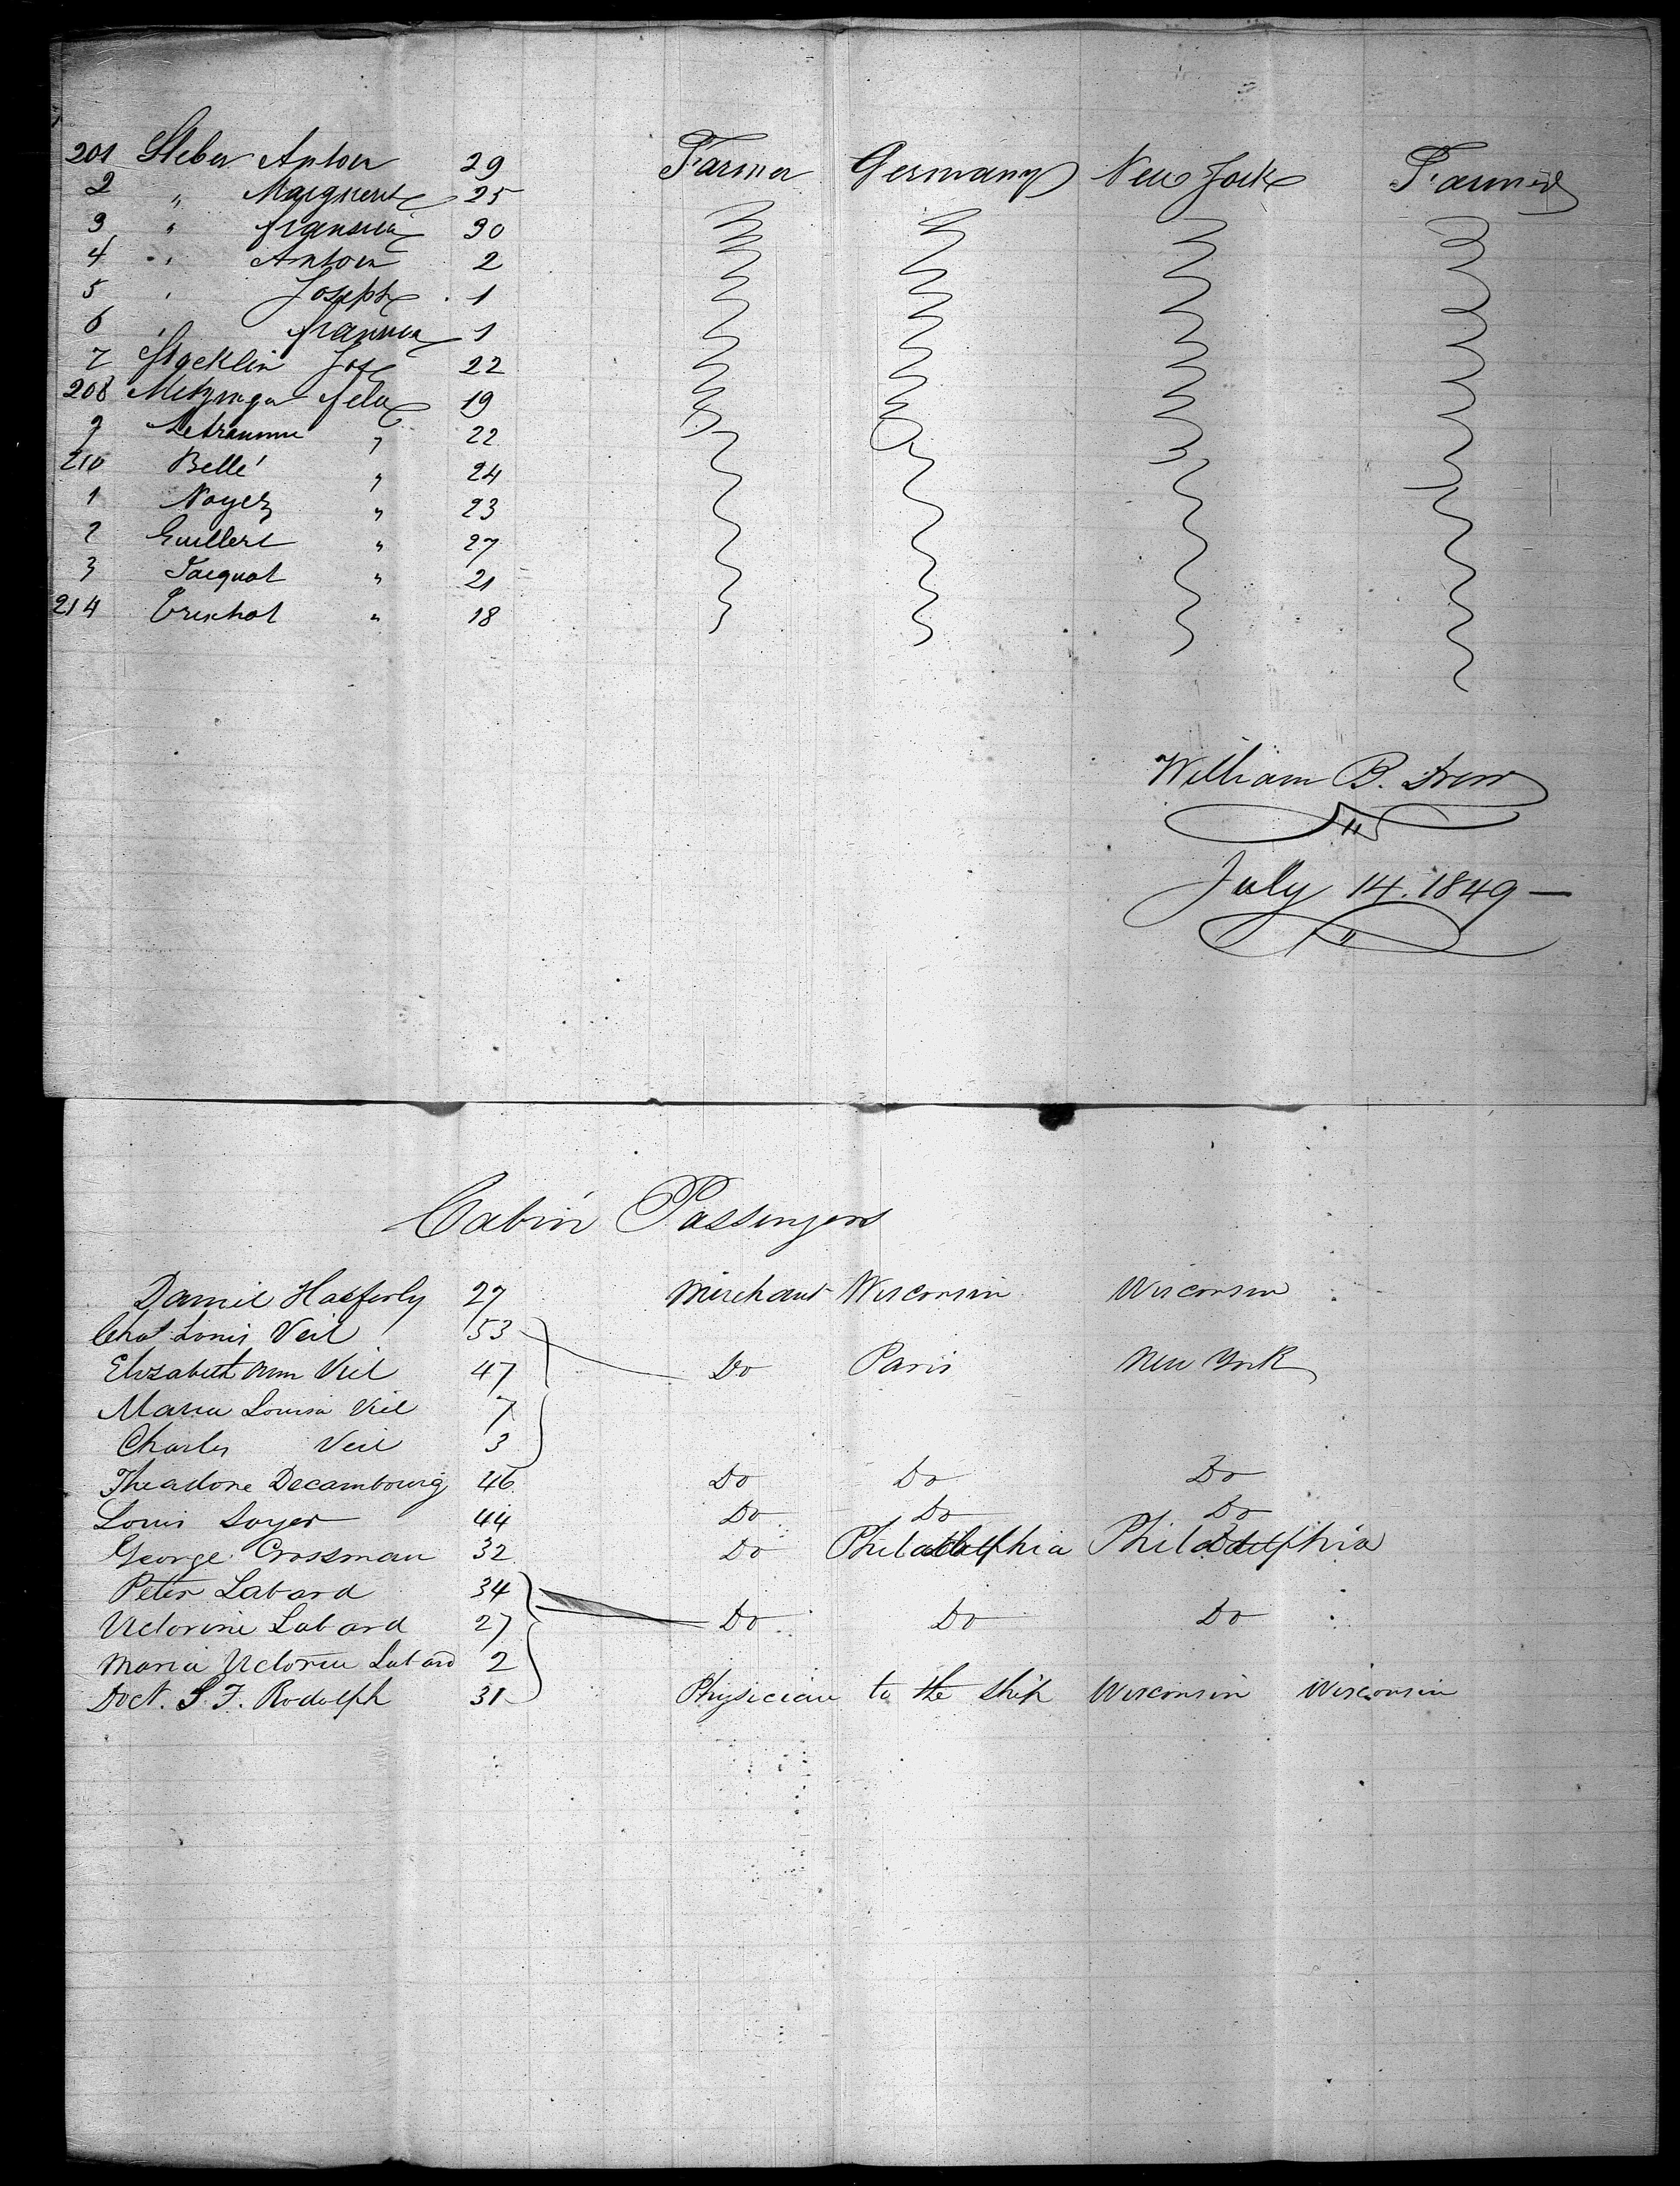 201 Steber Anton 29 Farmer Germany New York Farmer
2 " Marguerit 25
3 " 30
4 " Anton 2
5 " Joseph 1
6 " 1
7 Stocklin Jos 22
208 Metzinger Felix 19
9 " 22
210 Bellé " 24
1 Noyez " 23
2 Guillert " 27
3 Jacquot " 21
214 " 18
William B. Drew
July 14. 1849 —
Cabin Passengers
Daniel Hasferly 27 Merchant Wisconsin Wisconsin
Chas Louis Veil 53
Elizabeth Ann Viel 47 Do Paris New York
Maria Louisa Viel 7
Charles Veil 3
Theadore Decambourg 46 Do Do Do
Louis Soyer 44 Do Do Do
George Crossman 32 Do Philadelphia Philadelphia
Peter Labard 34
Victorine Labard 27 Do Do Do
Maria Victoria Labard 2
Doct. S. F. Rodolph 31 Physician to the ship Wisconsin Wisconsin